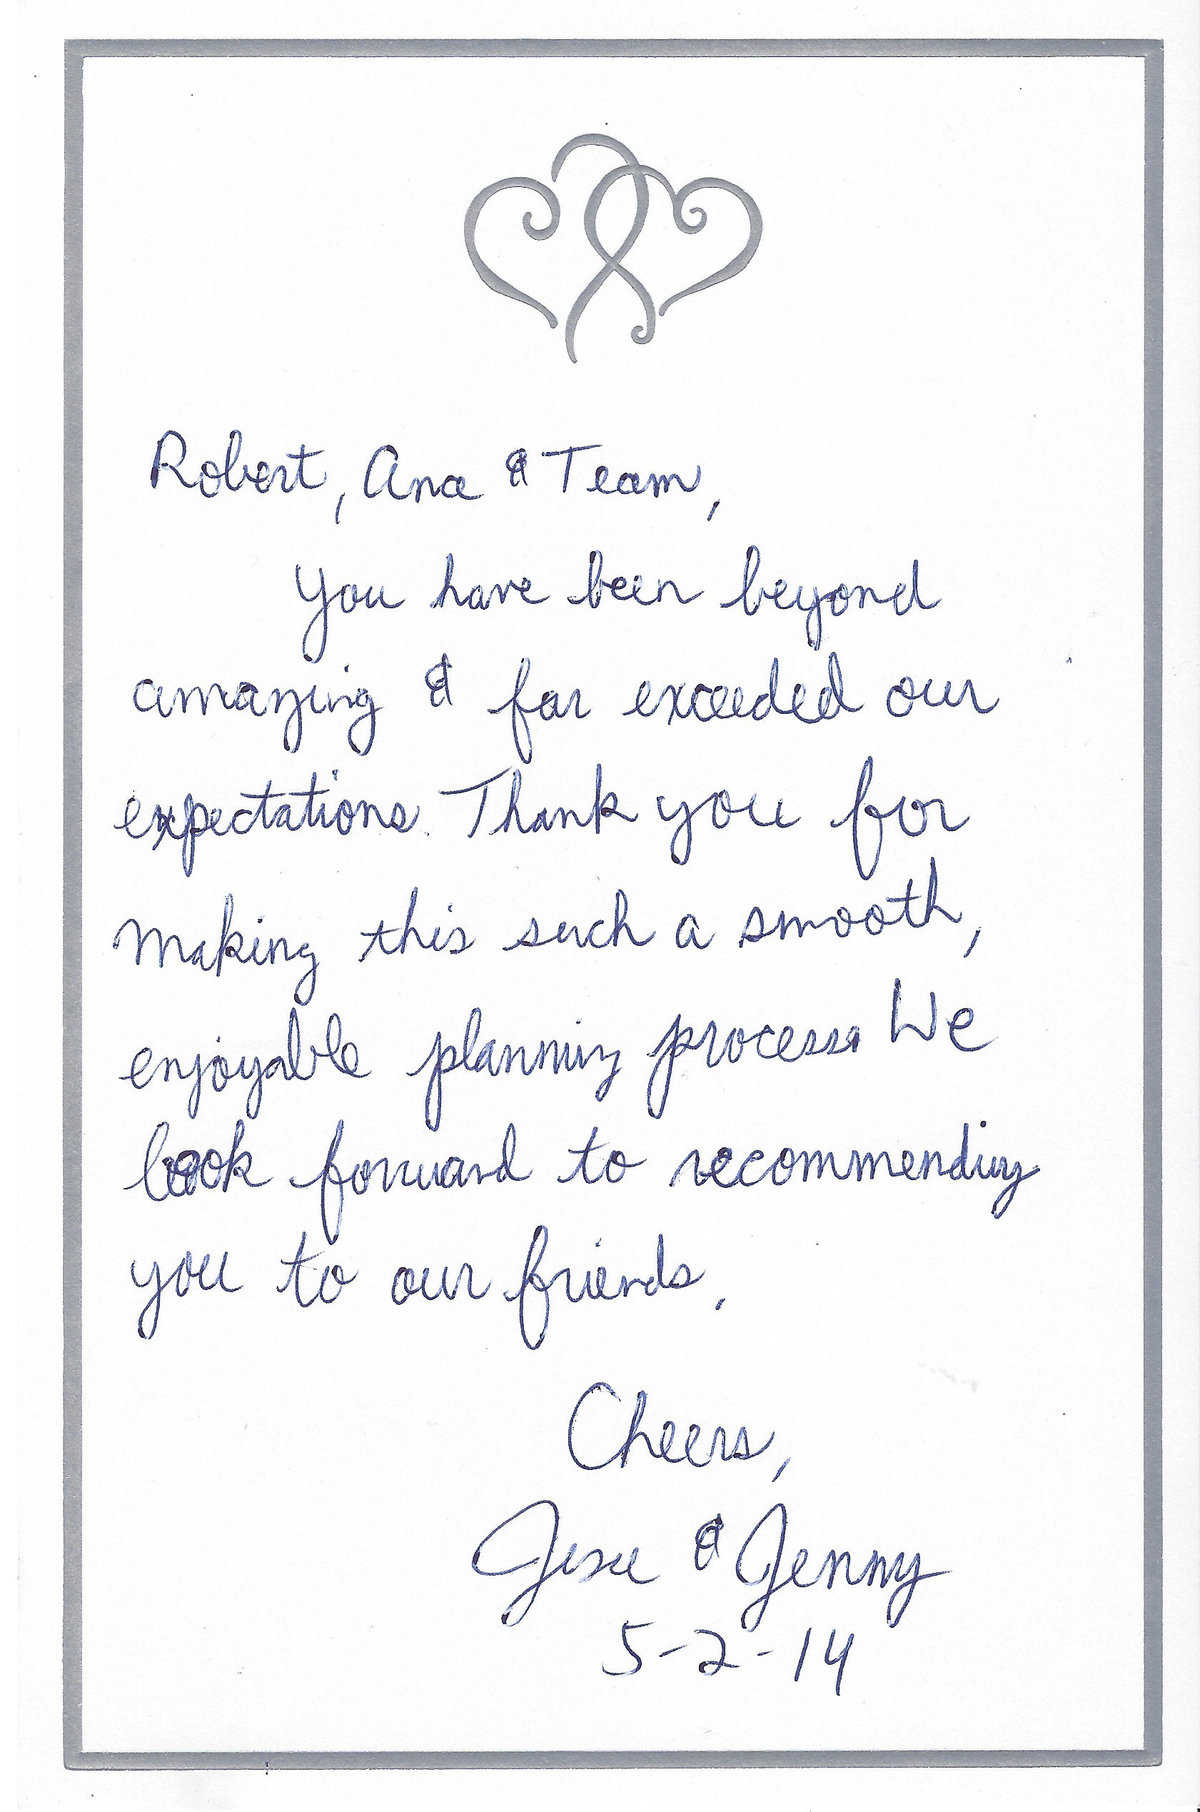 Robert, Ana & Team,
You have been beyond
amazing & far exceeded our
expectations. Thank you for
making this such a smooth,
enjoyable planning process. We
look forward to recommending
you to our friends.
Cheers,
Jesse & Jenny
5-2-14